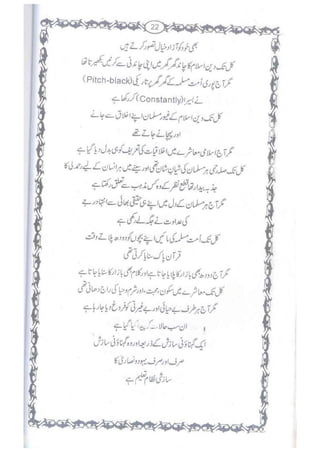 22
بھی خود کو آزاد خیال تصور کرتے ہیں
کل تک دین اسلام کا چاند گھر گھر میں اپنی چاندنی سے کرنیں بکھیرتا تھا
مگر آج پوری اُمت مسلمہ کے گھر گھر پر تاریکی (Pitch-black)
نے بسیرا (Constantly) کر رکھا ہے
کل تک دین اسلام کے غیور مسلمان اپنے اخلاق سے جانے
اور پہچانے جاتے تھے
مگر آج اسلامی معاشرے میں اخلاقیات کی تعریف کو ہی بدل دیا گیا ہے
کل تک صلہ رحمی ہر مسلمان کی شایانِ شان تھی اور سینے میں ہر انسان کے لیے رحمدلی کا
جذبہ بیدار تھا قطع نظر کے وہ کس مذہب سے تعلق رکھتا ہے
مگر آج ہر مسلمان کے دل میں اپنے ہی حقیقی بھائی سے انتہا درجے
کی عداوت نے جگہ لے رکھی ہے
کل تک اُمت مسلمہ کی مائیں اپنے بچوں کو دودھ پلاتے وقت
قرآن پاک سنایا کرتی تھی
مگر آج دودھ بھی بازار کا پلایا جاتا ہے اور کلام بھی بازار کا سنایا جاتا ہے
کل تک معاشرے میں سکون، محبت، اور شرم و حیا کی راج دھانی تھی
مگر آج ہر طرف بے حیائی اور بے غیرتی کو فروغ دیا جا رہا ہے
ان سب حالات کو پیدا کیا گیا ہے
ایک گھناؤنی سازش کے ذریعہ اور وہ گھناؤنی سازش
صرف اور صرف یہود و نصاریٰ کا
سازشی نظام تعلیم ہے